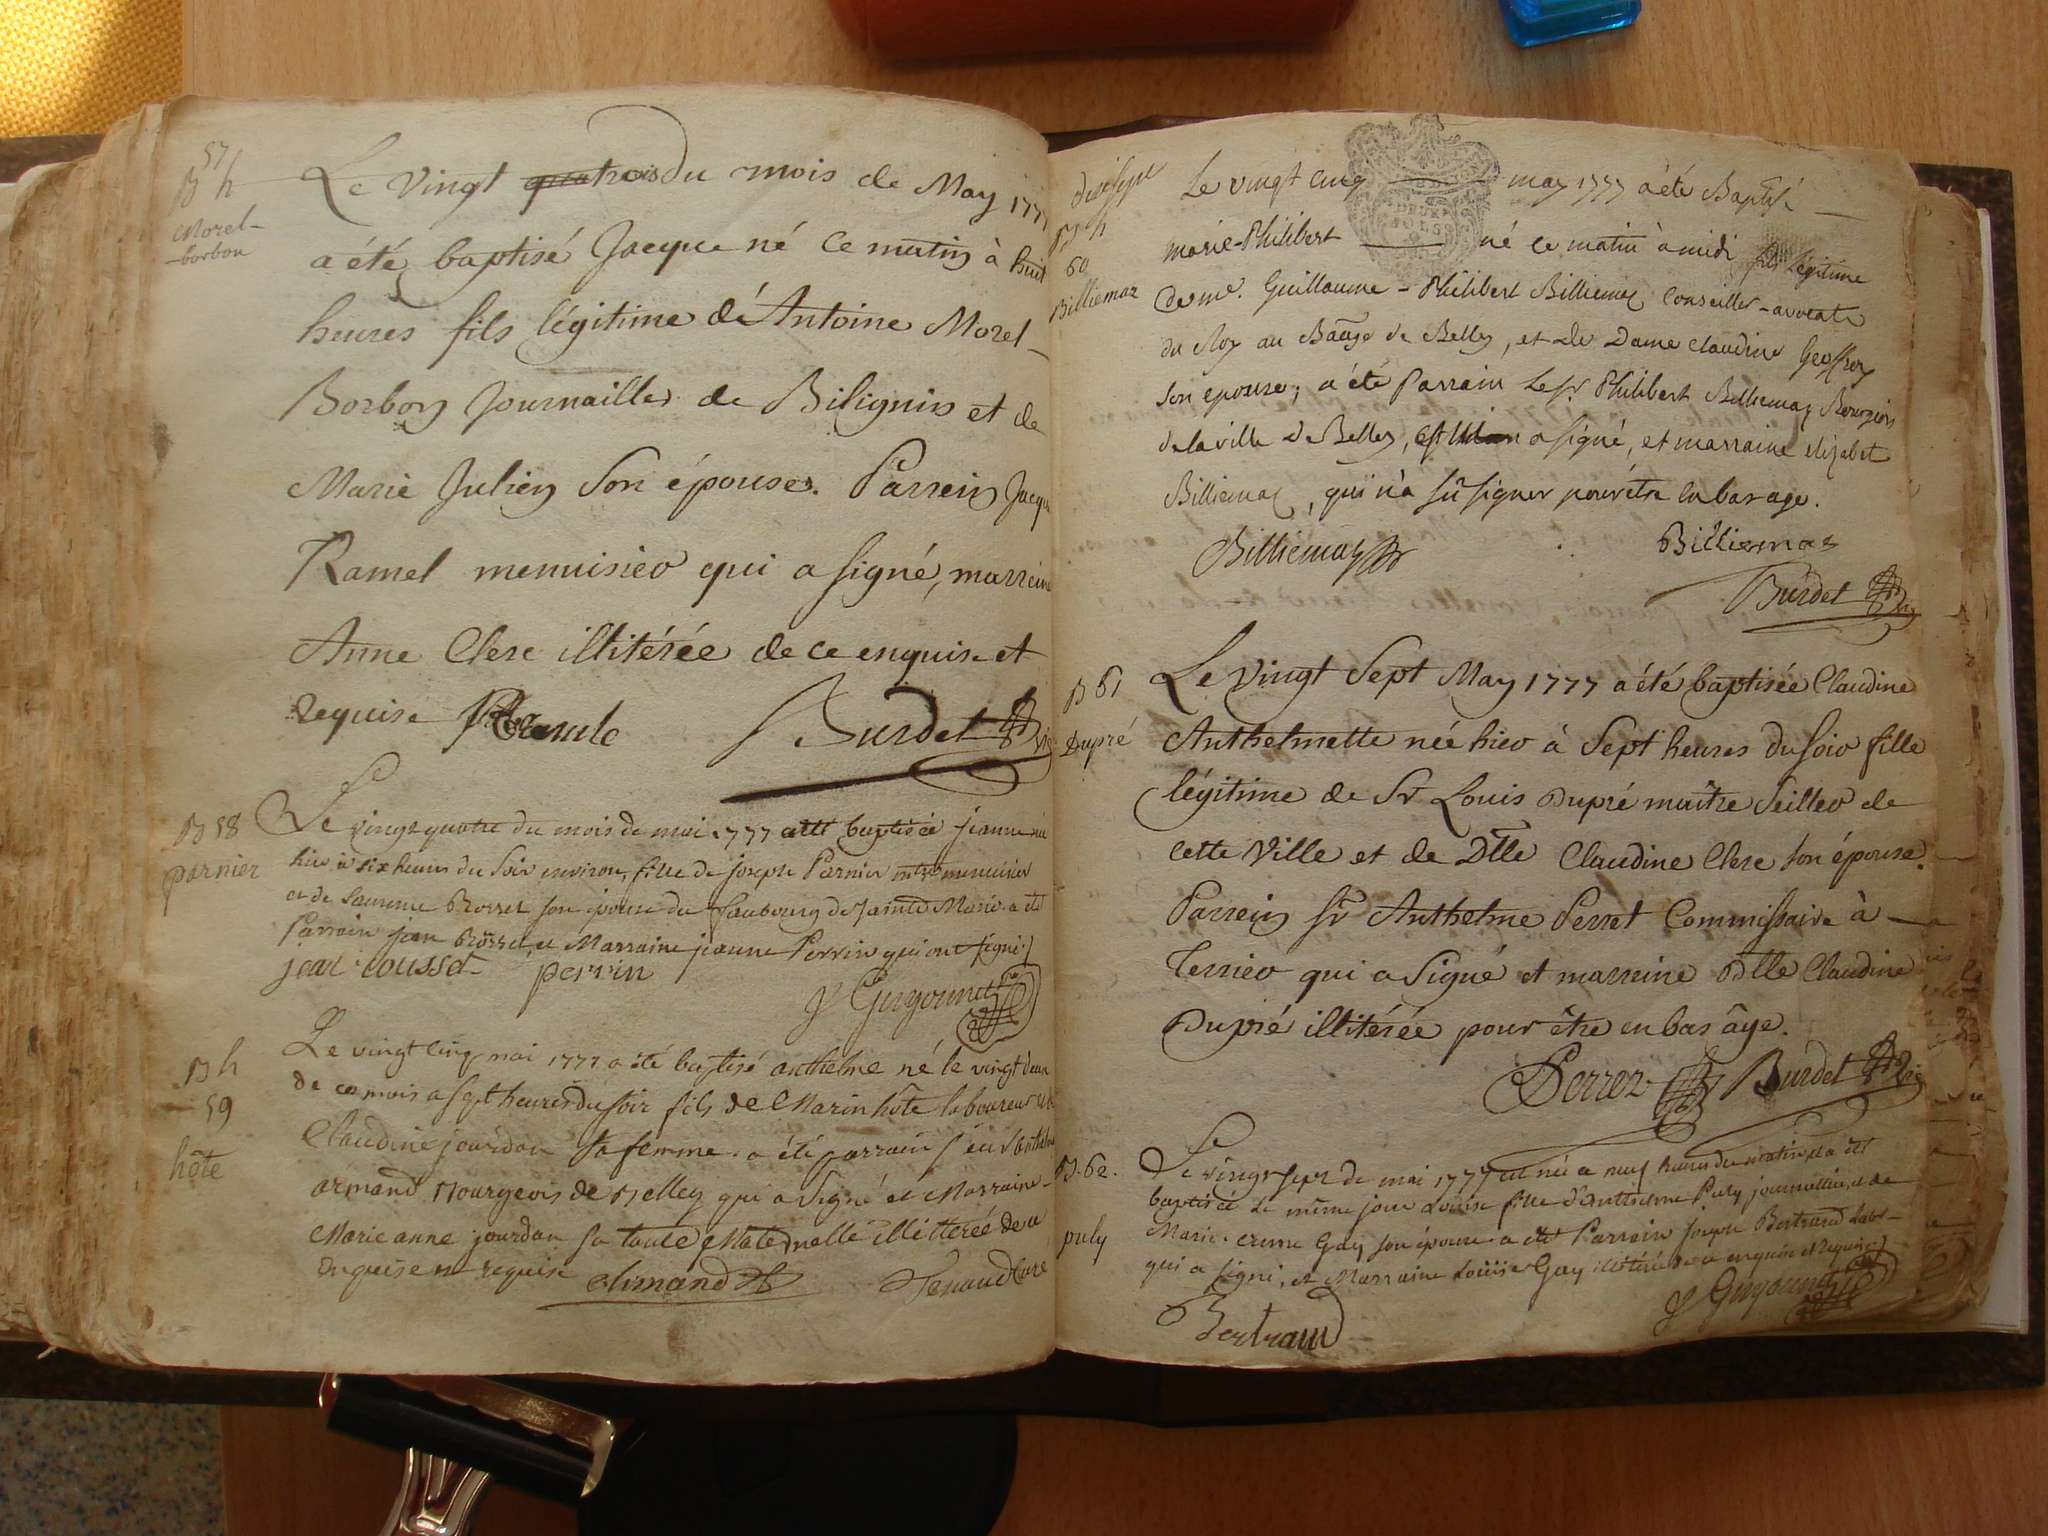 57
B h
Morel-
-borbon
Le vingt trois du mois de May 177
a été baptisé Jacque né ce matin à huit
heures fils légitime d'Antoine Morel-
Borbon Journaillier de Bilignin et de
Marie Julien son épouse. Parrein Jacque
Ramel menuisier qui a signé, marreine
Anne Clerc illitérée de ce enquise et
requise
Burdet vic
B 58
parnier
Le vingt quatre du mois de mai 1777 a été baptisée jeanne née
hier à six heures du soir environ, fille de joseph Parnier mtre menuisier
et de Laurence Rosset son épouse du Faubourg de Sainte Marie. a été
Parrain jean Rosset, et Marraine jeanne Perrin qui ont signé.
jean rousset perrin
J Guyonnet
B h
59
hôte
Le vingt cinq mai 1777 a été baptisé anthelme né le vingt deux
de ce mois a sept heures du soir fils de Marin hôte laboureur et de
Claudine jourdan sa femme. a été parrain sieur anthelme
armand Bourgeois de Belley qui a signé et Marraine
Marie anne jourdan sa tante Maternelle illitterée de ce
enquise et requise armand
Tenaud Curé
B h
60
Billiemaz
Le vingt cinq may 1777 a été Baptisé
marie-Philibert né ce matin à midi fils légitime
de me. Guillaume-Philibert Billiemaz Conseiller-avocat
du Roy au Baage de Belley, et de Dame Claudine Geoffroy
son epouse; a été Parrain le Sr. Philibert Billiemaz Bourgeois
de la ville de Belley, a signé, et marraine elizabet
Billiemaz, qui n'a sû signer pour être en bas age.
Billiemaz Billiemaz
Burdet vic
B 61
Dupré
Le vingt sept May 1777 a été baptisée Claudine
Anthelmette née hier à sept heures du soir fille
légitime de Sr Louis Dupré maître seillier de
cette Ville et de Dlle Claudine Clerc son épouse.
Parrein Sr Anthelme Perret Commissaire à
Terrier qui a signé et marreine Dlle Claudine
Dupré illitérée pour être en bas âge.
Perret Burdet vic
B. 62.
puly
Le vingt sept de mai 1777 est née a neuf heures du matin et a été
baptisée le même jour Louise fille d'Anthelme Puly journallier, et de
Marie Gay son épouse. a été Parrain Joseph Bertrand labr-
qui a signé, et Marraine Louise Gay illitérée de ce enquise et requise
J Guyonnet
Bertrand